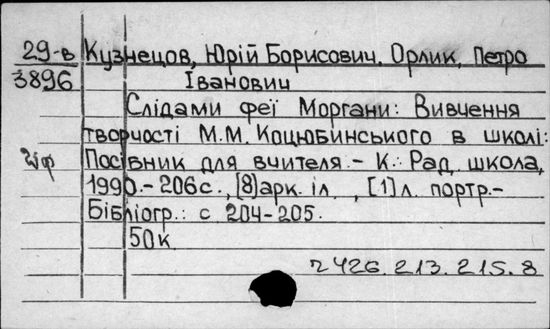 29-в Кузнецов, Юрій Борисович. Орлик, Петро
3896 Іванович
Слідами феї Моргани: Вивчення
творчості М.М. Коцюбинського в школі:
Посівник для вчителя.- К.: Рад. школа,
1990.-206 с., [8] арк. іл., [1] л. портр.-
Бібліогр.: с 204-205.
50к.
2426.213.215.8